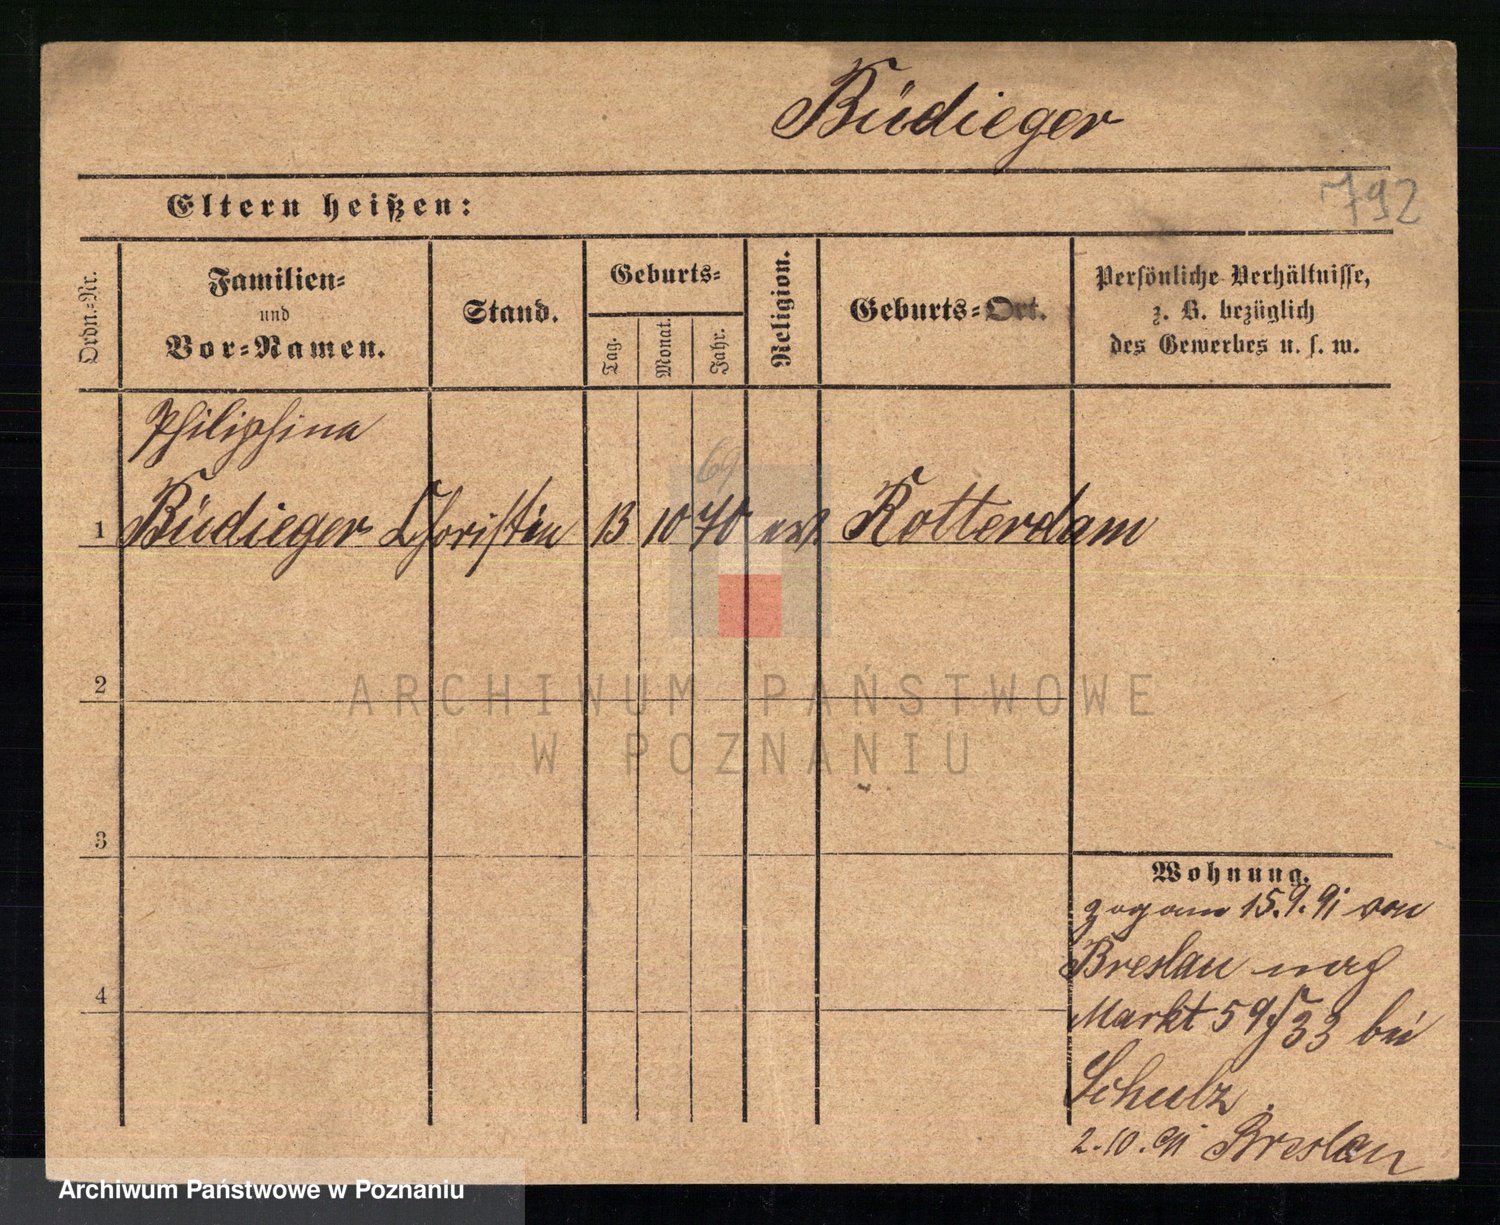 Büdieger
792
Eltern heißen:
Ordn.-Nr.
Familien-
und
Vor-Namen.
Stand.
Geburts-
Tag.
Monat.
Jahr.
Religion.
Geburts-Ort.
Persönliche Verhältnisse,
z. B. bezüglich
des Gewerbes u. s. w.
Philiphina
69
1 Büdieger Christin 13 10 70 Rotterdam
2
3
4
Wohnung.
zog am 15.9.91 von
Breslau nach
Markt 59/33 bei
Schulz
2.10.91 Breslau
ARCHIWUM PAŃSTWOWE
W POZNANIU
Archiwum Państwowe w Poznaniu